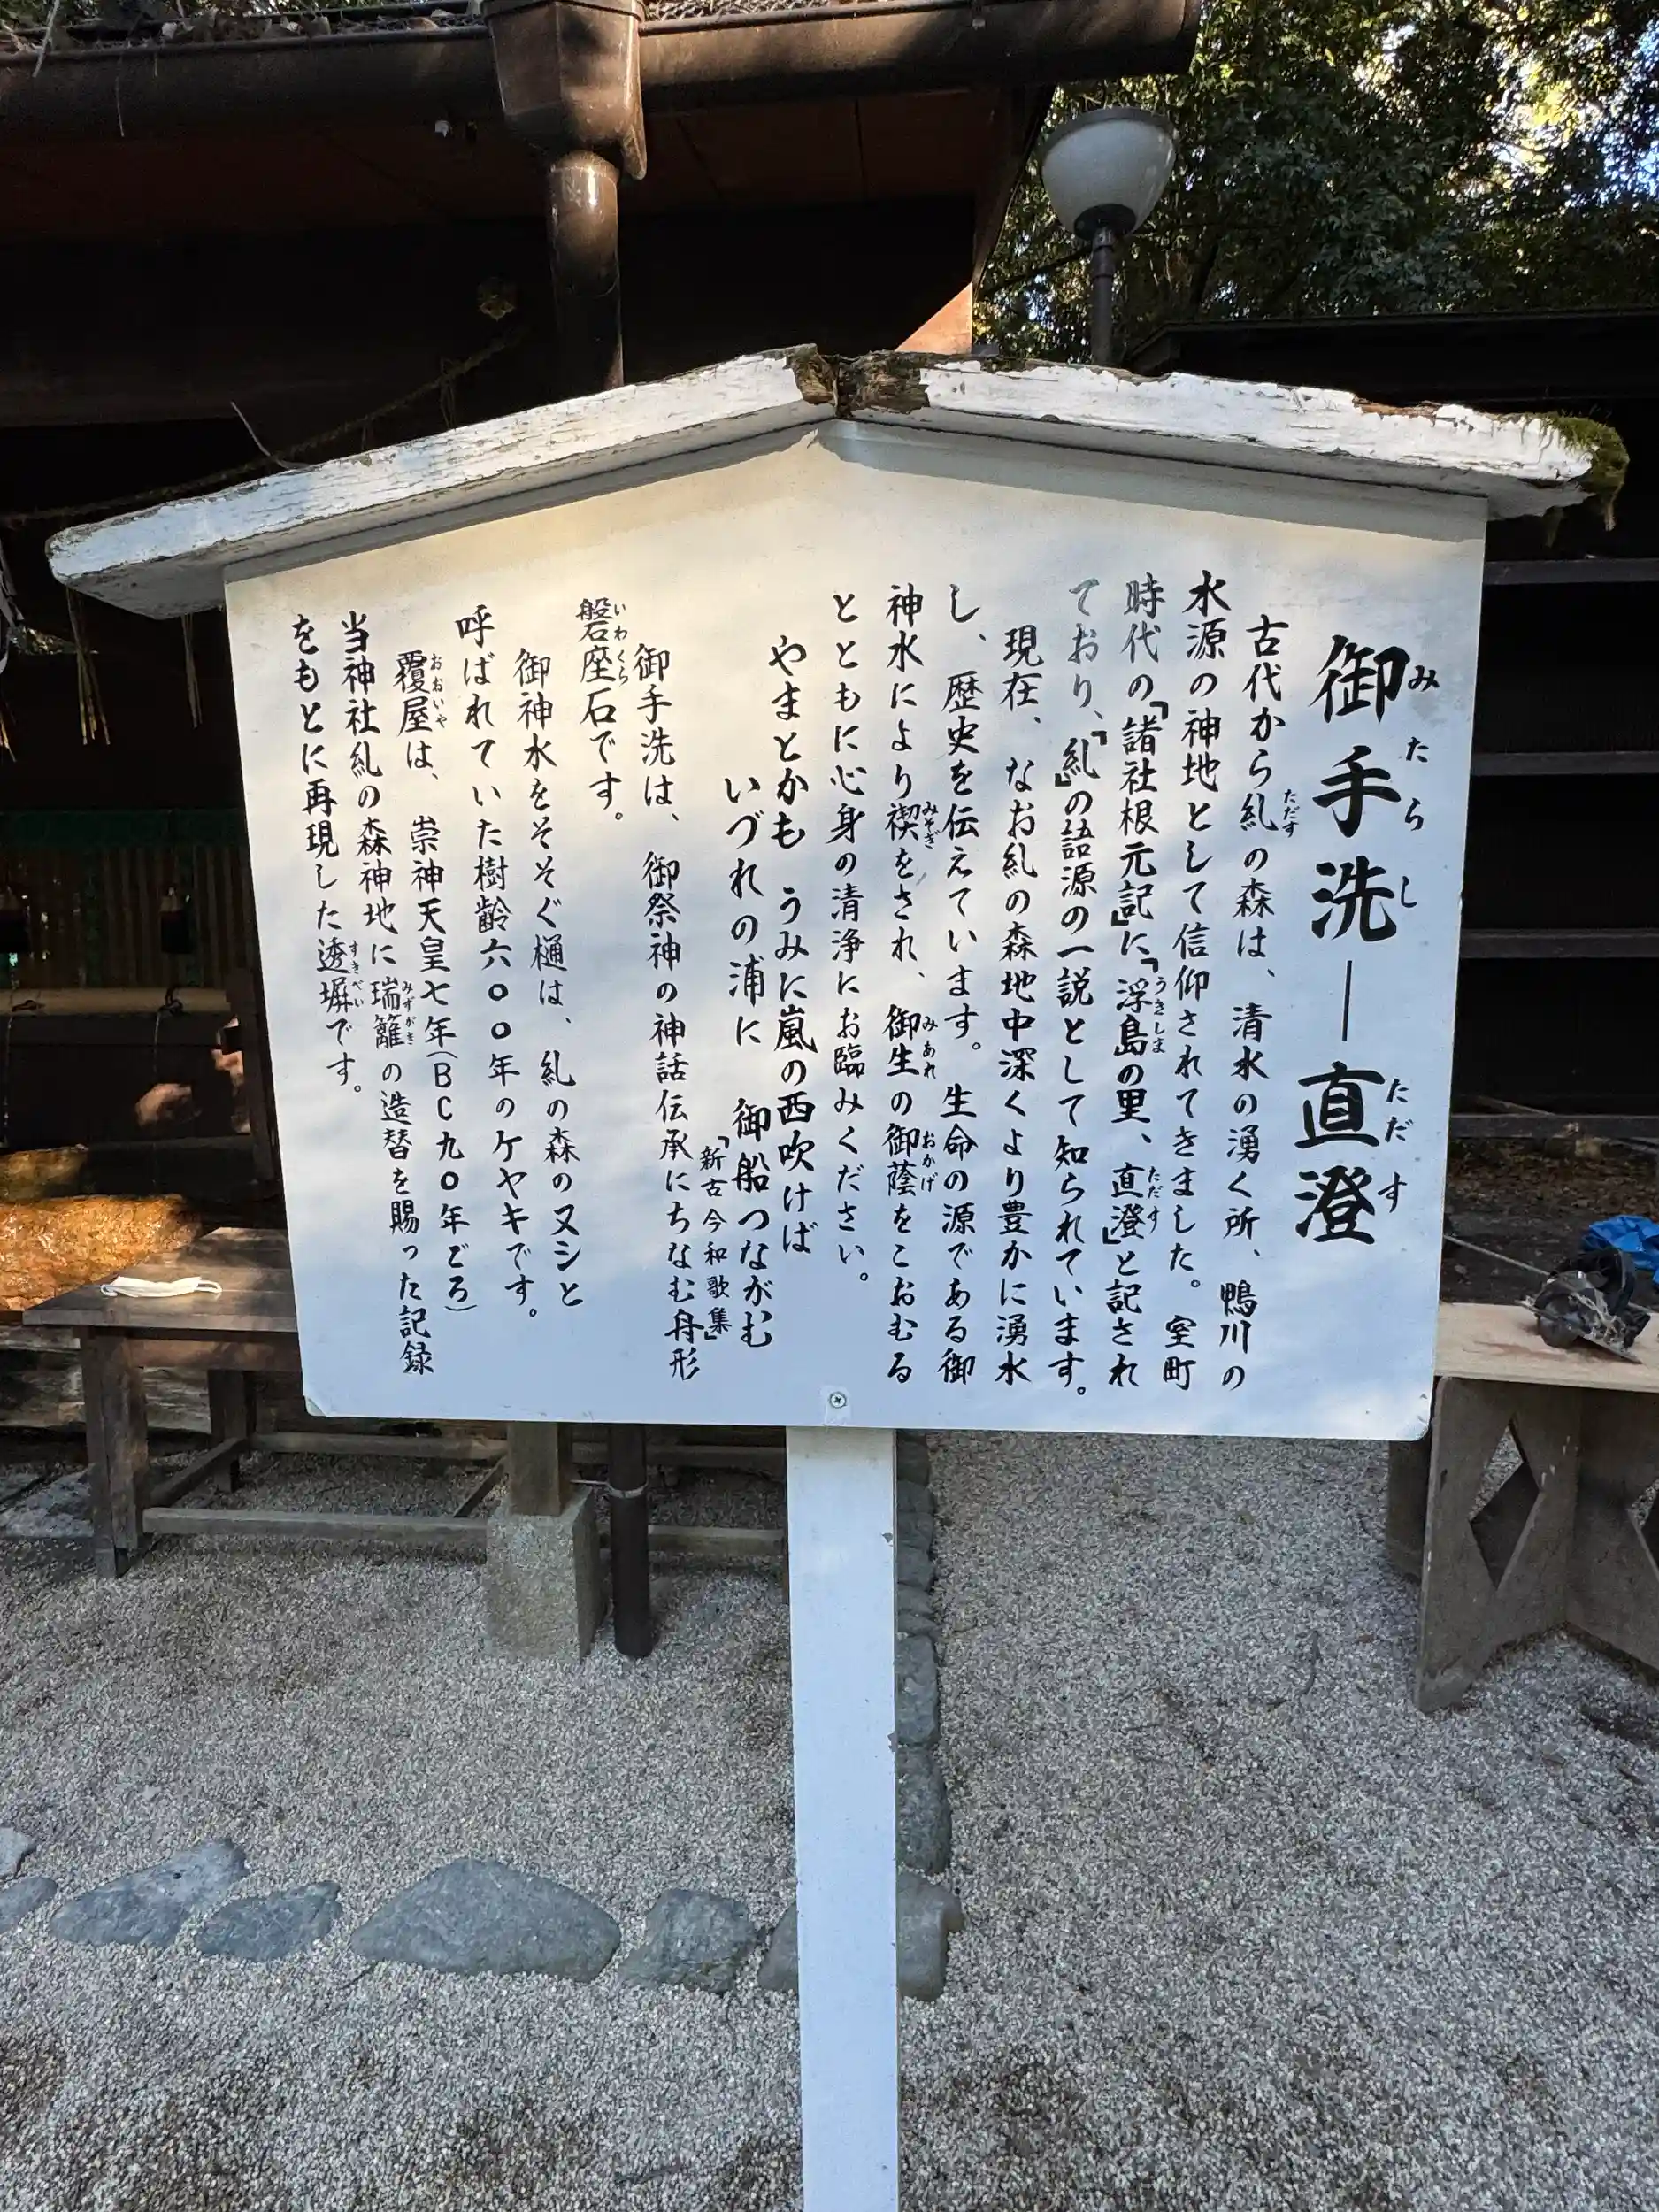 御手洗―直澄
古代から糺の森は、清水の湧く所、鴨川の
水源の神地として信仰されてきました。室町
時代の「諸社根元記」に「浮島の里、直澄」と記され
ており、「糺」の語源の一説として知られています。
現在、なお糺の森地中深くより豊かに湧水
し、歴史を伝えています。生命の源である御
神水により禊をされ、御生の御蔭をこおむる
とともに心身の清浄にお臨みください。
やまとかも うみに嵐の西吹けば
いづれの浦に 御船つながむ
「新古今和歌集」
御手洗は、御祭神の神話伝承にちなむ舟形
磐座石です。
御神水をそそぐ樋は、糺の森のヌシと
呼ばれていた樹齢六〇〇年のケヤキです。
覆屋は、崇神天皇七年(BC九〇年ごろ)
当神社糺の森神地に瑞籬の造替を賜った記録
をもとに再現した透塀です。